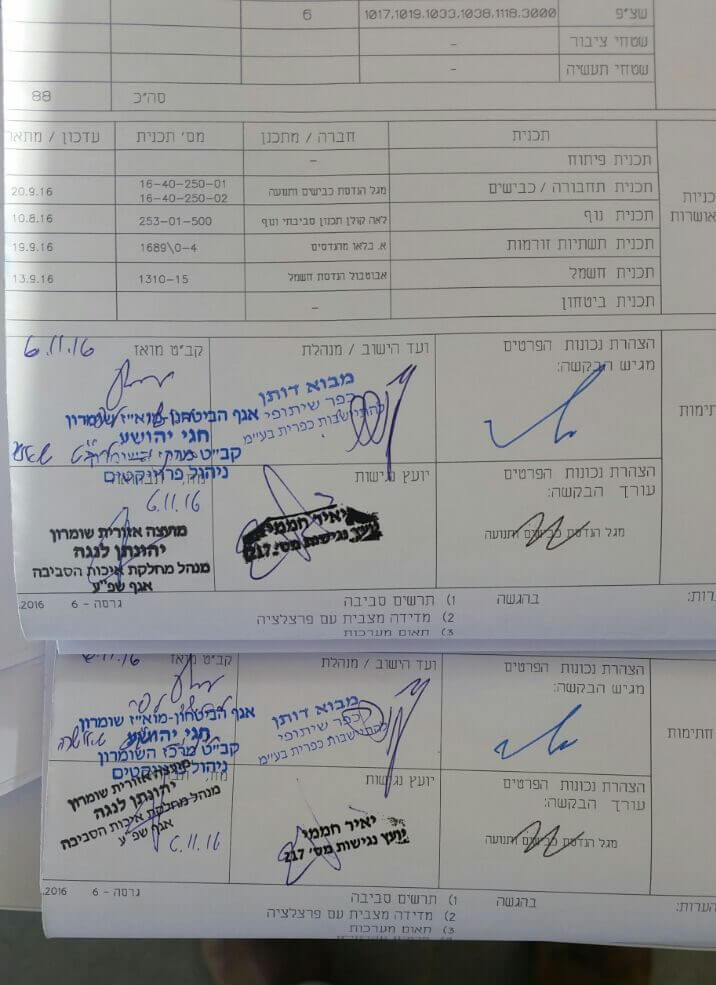 שצ"פ 1017,1019,1033,1038,1118,3000 6
שטחי ציבור -
שטחי תעשיה -
סה"כ 88
תכנית חברה / מתכנן מס' תכנית עדכון / מתאר
תכנית פיתוח -
תכנית תחבורה / כבישים מגל הנדסת כבישים ותנועה 16-40-250-01 20.9.16
16-40-250-02
תכנית נוף לאה קולן תכנון סביבתי ונוף 253-01-500 10.8.16
תכנית תשתיות זורמות א. בלאו מהנדסים 1689\0-4 19.9.16
תכנית חשמל אבוטבול הנדסת חשמל 1310-15 13.9.16
תכנית ביטחון -
הצהרת נכונות הפרטים
מגיש הבקשה:
ועד הישוב / מנהלת
קב"ט מואז
6.11.16
מבוא דותן
כפר שיתופי
להתיישבות כפרית בע"מ
אגף הביטחון-מוא"ז שומרון
חגי יהושע
קב"ט מרכז השומרון
ניהול פרויקטים
הצהרת נכונות הפרטים
עורך הבקשה:
מגל הנדסת כבישים ותנועה
יועץ נגישות
יאיר חממי
יועץ נגישות מס' 217
6.11.16
מועצה אזורית שומרון
יהונתן לנגה
מנהל מחלקת איכות הסביבה
אגף שפ"ע
בהגשה 1) תרשים סביבה
2) מדידה מצבית עם פרצלציה
3) תאום מערכות
גרסה - 6 2016.
הצהרת נכונות הפרטים
מגיש הבקשה:
ועד הישוב / מנהלת
קב"ט מואז
6.11.16
מבוא דותן
כפר שיתופי
להתיישבות כפרית בע"מ
אגף הביטחון-מוא"ז שומרון
חגי יהושע
קב"ט מרכז השומרון
ניהול פרויקטים
חתימות
הצהרת נכונות הפרטים
עורך הבקשה:
מגל הנדסת כבישים ותנועה
יועץ נגישות
יאיר חממי
יועץ נגישות מס' 217
מועצה אזורית שומרון
יהונתן לנגה
מנהל מחלקת איכות הסביבה
אגף שפ"ע
6.11.16
הערות: בהגשה 1) תרשים סביבה
2) מדידה מצבית עם פרצלציה
3) תאום מערכות
גרסה - 6 2016.